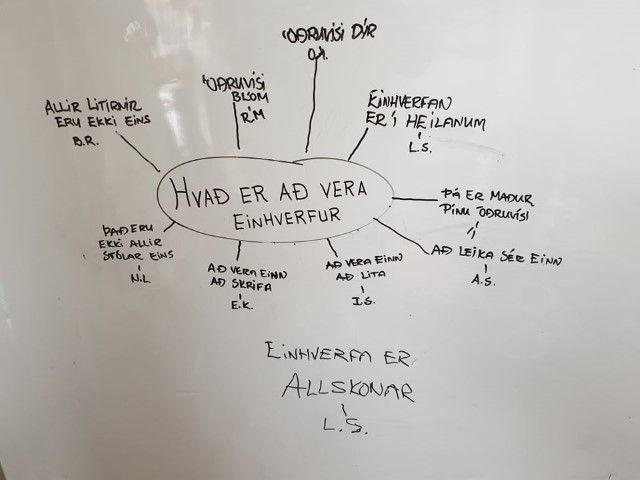 ÖÐRUVÍSI DÝR
ÖÐRUVÍSI
BLÓM
R.M
ALLIR LITIRNIR
ERU EKKI EINS
B.R.
EINHVERFAN
ER Í HEILANUM
L.S.
HVAÐ ER AÐ VERA
EINHVERFUR
ÞÁ ER MAÐUR
PÍNU ÖÐRUVÍSI
AÐ LEIKA SÉR EINN
A.S.
ÞAÐ ERU
EKKI ALLIR
STÓLAR EINS
N.L
AÐ VERA EINN
AÐ SKRIFA
E.K.
AÐ VERA EINN
AÐ LITA
I.S.
EINHVERFA ER
ALLSKONAR
L.S.